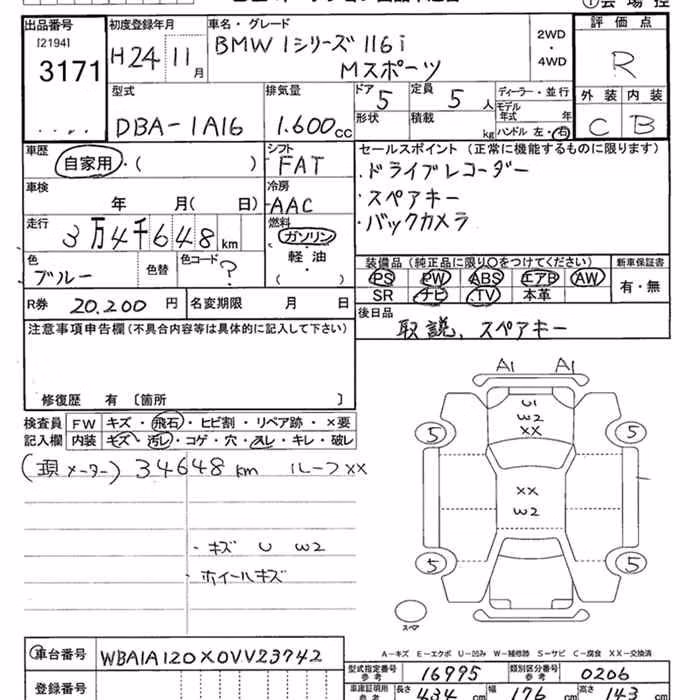 出品番号 [2194] 3171
初度登録年月 H24 11月
車名・グレード BMW 1シリーズ 116i
Mスポーツ
2WD
・
4WD
評価点 R
外装 C 内装 B
型式 DBA-1A16
排気量 1.600cc
ドア 5 定員 5人
形状 積載 kg
ディーラー・並行
モデル年式 年
ハンドル 左・右
車歴 自家用・( )
シフト FAT
車検 年 月( 日)
冷房 AAC
走行 3万4千648km
燃料 ガソリン・軽油・( )
色 ブルー 色替 色コード ?
R券 20.200円 名変期限 月 日
セールスポイント (正常に機能するものに限ります)
・ドライブレコーダー
・スペアキー
・バックカメラ
装備品(純正品に限り○をつけてください) 新車保証書
PS PW ABS エアB AW 有・無
SR ナビ TV 本革
後日品 取説、スペアキー
注意事項申告欄(不具合内容等は具体的に記入して下さい)
修復歴 有 〔箇所 〕
検査員 FW キズ・飛石・ヒビ割・リペア跡・×要
記入欄 内装 キズ・汚レ・コゲ・穴・スレ・キレ・破レ
(現メーター) 34648km ルーフXX
・キズ U W2
・ホイールキズ
A1 A1
U1
W2
XX
5 5
XX
W2
5 5
スペア
A-キズ E-エクボ U-凹み W-補修跡 S-サビ C-腐食 XX-交換済
車台番号 WBA1A120X0VV23742
登録番号
型式指定番号 参考 16995 類別区分番号 参考 0206
車庫証明用 参考 長さ 434cm 幅 176cm 高さ 143cm